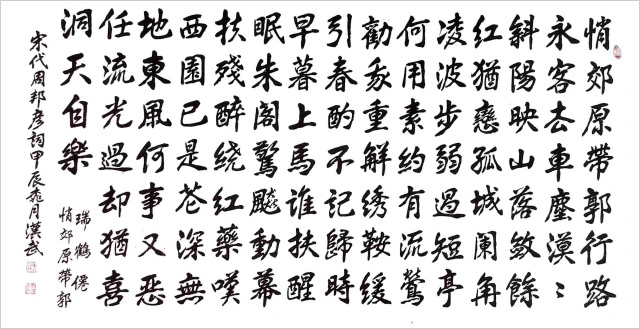 悄郊原帶郭行路
永客去車塵漠〻
斜陽映山落斂餘
紅猶戀孤城闌角
凌波步弱過短亭
何用素約有流鶯
勸我重解绣鞍緩
引春酌不記歸時
早暮上馬誰扶醒
眠朱閣驚飈動幕
扶殘醉绕紅藥嘆
西園已是花深無
地東風何事又惡
任流光過却猶喜
洞天自樂
瑞鶴僊
悄郊原帶郭
宋代周邦彦詞甲辰月漢武